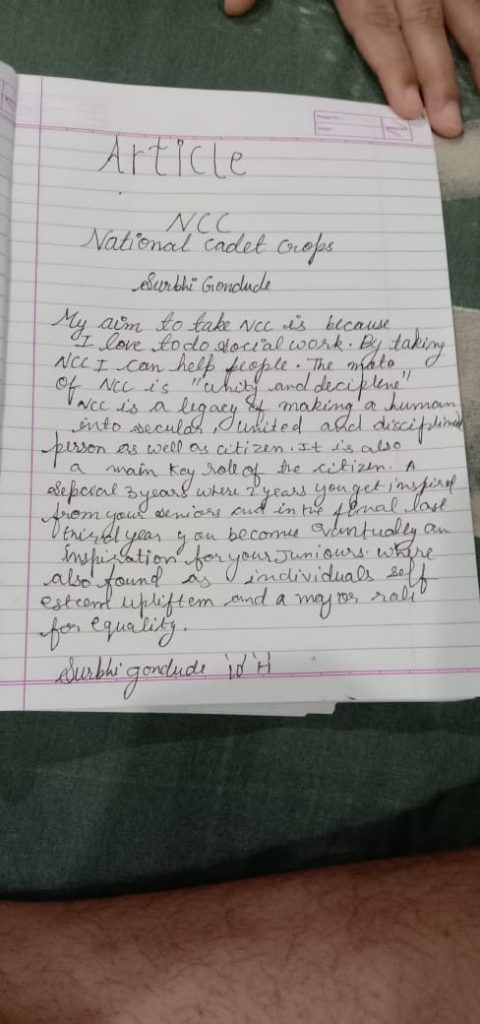 Article
NCC
National Cadet Crops
Surbhi Gondude
My aim to take NCC is because
I love to do social work. By taking
NCC I can help people. The moto
of NCC is "unity and decipline"
NCC is a legacy of making a human
into secular, united and disciplined
person as well as citizen. It is also
a main key role of the citizen. A
special 3 years where 2 years you get inspired
from your seniors and in the final last
year you become eventually an
Inspiration for your Juniours. where
also found as individuals self
esteem and a major role
for equality.
Surbhi gondude